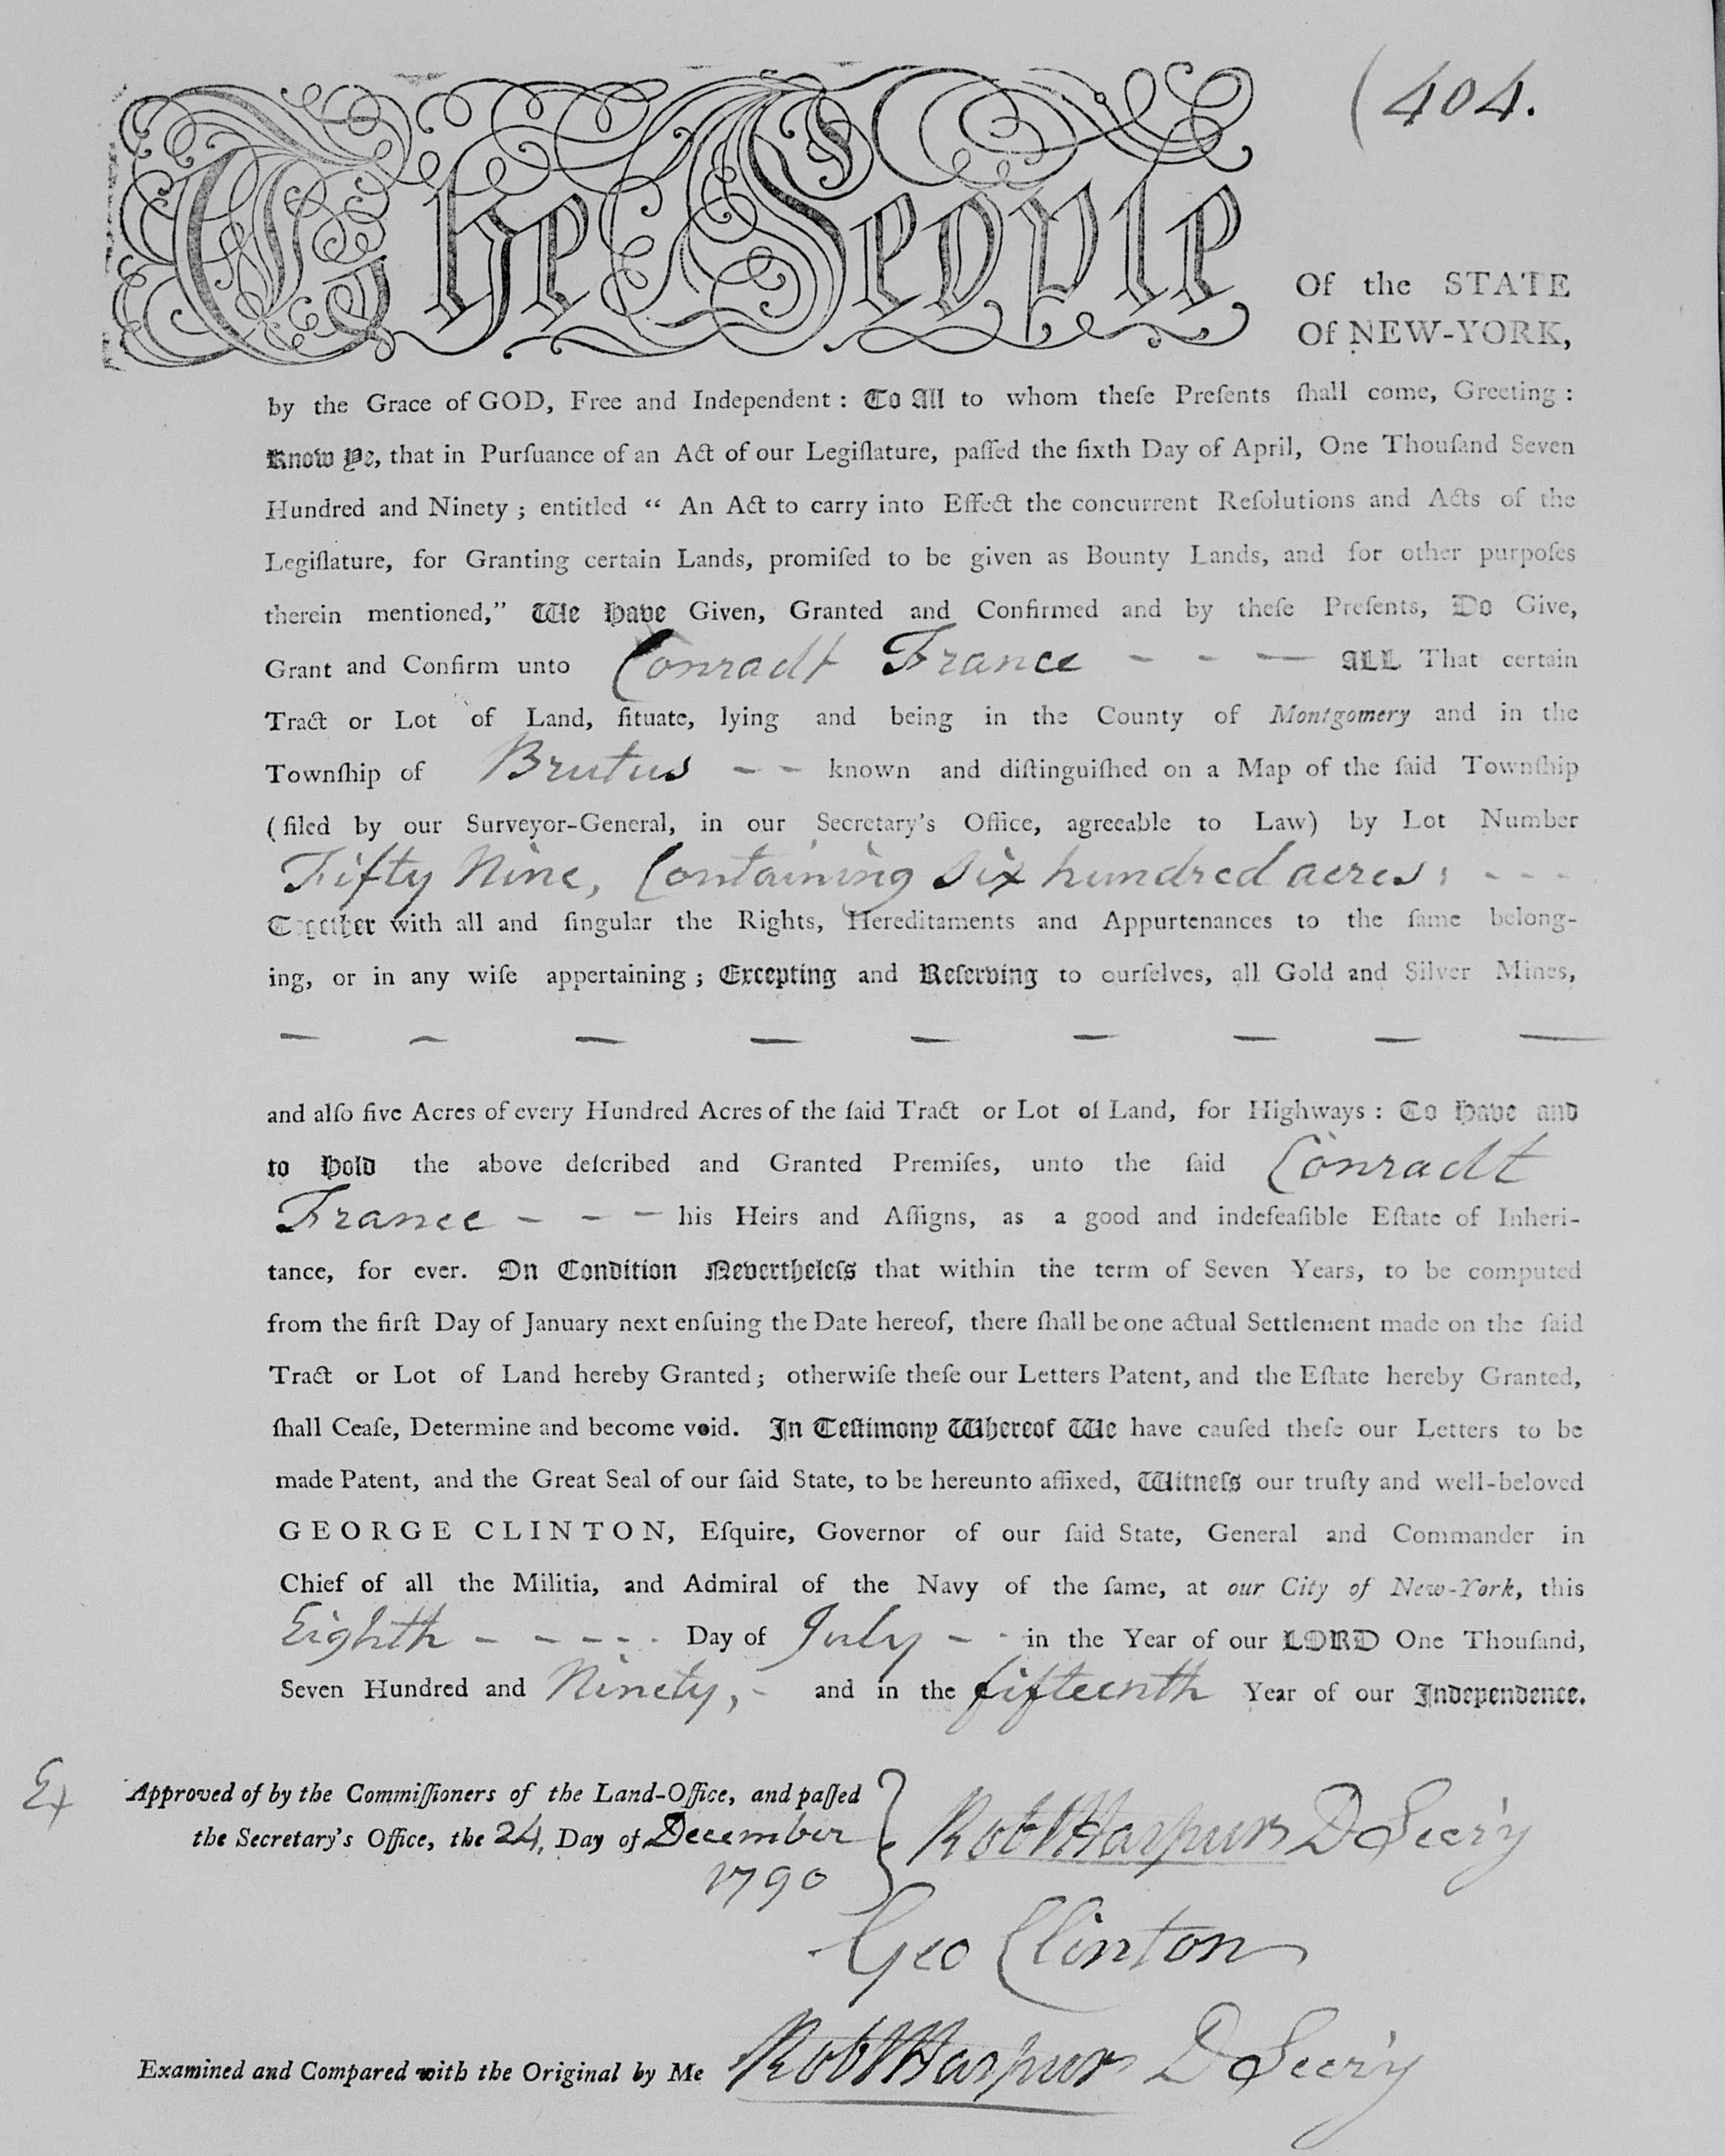 (404.
The People
Of the STATE
Of NEW-YORK,
by the Grace of GOD, Free and Independent : To All to whom theſe Preſents ſhall come, Greeting :
Know Ye, that in Purſuance of an Act of our Legiſlature, paſſed the ſixth Day of April, One Thouſand Seven
Hundred and Ninety ; entitled “ An Act to carry into Effect the concurrent Reſolutions and Acts of the
Legiſlature, for Granting certain Lands, promiſed to be given as Bounty Lands, and for other purpoſes
therein mentioned,” We Have Given, Granted and Confirmed and by theſe Preſents, Do Give,
Grant and Confirm unto Conradt France - - — ALL That certain
Tract or Lot of Land, ſituate, lying and being in the County of Montgomery and in the
Townſhip of Brutus - - known and diſtinguiſhed on a Map of the ſaid Townſhip
( filed by our Surveyor-General, in our Secretary's Office, agreeable to Law) by Lot Number
Fifty Nine, Containing Six hundred acres; - - -
Together with all and ſingular the Rights, Hereditaments and Appurtenances to the ſame belong-
ing, or in any wiſe appertaining ; Excepting and Reſerving to ourſelves, all Gold and Silver Mines,
— — — — — — — — —
and alſo five Acres of every Hundred Acres of the ſaid Tract or Lot of Land, for Highways : To Have and
to Hold the above deſcribed and Granted Premiſes, unto the ſaid Conradt
France - - - his Heirs and Aſſigns, as a good and indefeaſible Eſtate of Inheri-
tance, for ever. On Condition Nevertheleſs that within the term of Seven Years, to be computed
from the firſt Day of January next enſuing the Date hereof, there ſhall be one actual Settlement made on the ſaid
Tract or Lot of Land hereby Granted ; otherwiſe theſe our Letters Patent, and the Eſtate hereby Granted,
ſhall Ceaſe, Determine and become void. In Teſtimony Whereof We have cauſed theſe our Letters to be
made Patent, and the Great Seal of our ſaid State, to be hereunto affixed, Witneſs our truſty and well-beloved
GEORGE CLINTON, Eſquire, Governor of our ſaid State, General and Commander in
Chief of all the Militia, and Admiral of the Navy of the ſame, at our City of New-York, this
Eighth - - - - - Day of July - - in the Year of our LORD One Thouſand,
Seven Hundred and Ninety, - and in the fifteenth Year of our Independence.
Ex
Approved of by the Commiſſioners of the Land-Office, and paſſed
the Secretary's Office, the 24, Day of December
1790
Robt Harpur D Secry
Geo Clinton
Examined and Compared with the Original by Me Robt Harpur D Secry